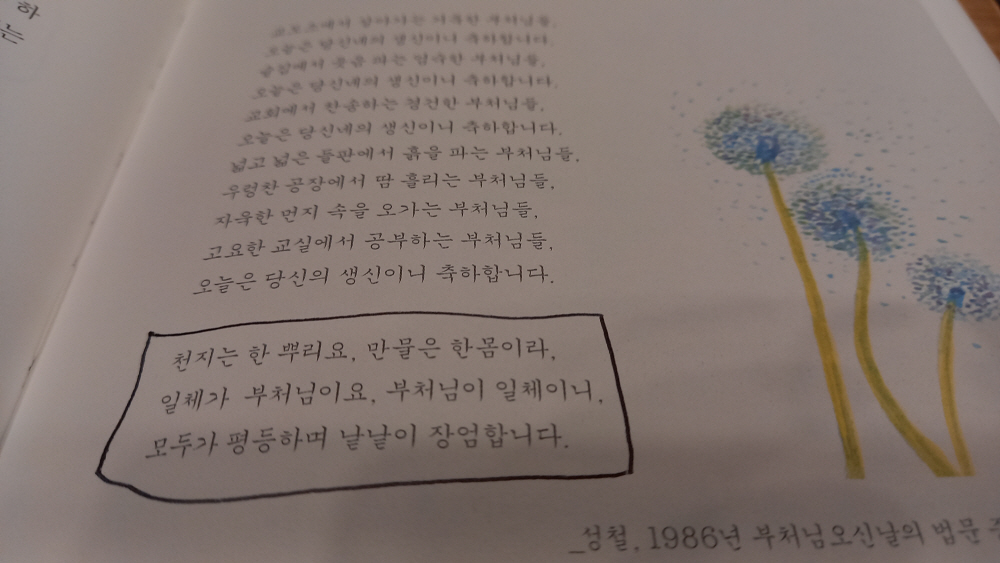 하
는
교도소에서 살아가는 거룩한 부처님들,
오늘은 당신네의 생신이니 축하합니다.
술집에서 웃음 파는 엄숙한 부처님들,
오늘은 당신네의 생신이니 축하합니다.
교회에서 찬송하는 경건한 부처님들,
오늘은 당신네의 생신이니 축하합니다.
넓고 넓은 들판에서 흙을 파는 부처님들,
우렁찬 공장에서 땀 흘리는 부처님들,
자욱한 먼지 속을 오가는 부처님들,
고요한 교실에서 공부하는 부처님들,
오늘은 당신의 생신이니 축하합니다.
천지는 한 뿌리요, 만물은 한몸이라,
일체가 부처님이요, 부처님이 일체이니,
모두가 평등하며 낱낱이 장엄합니다.
_성철, 1986년 부처님오신날의 법문